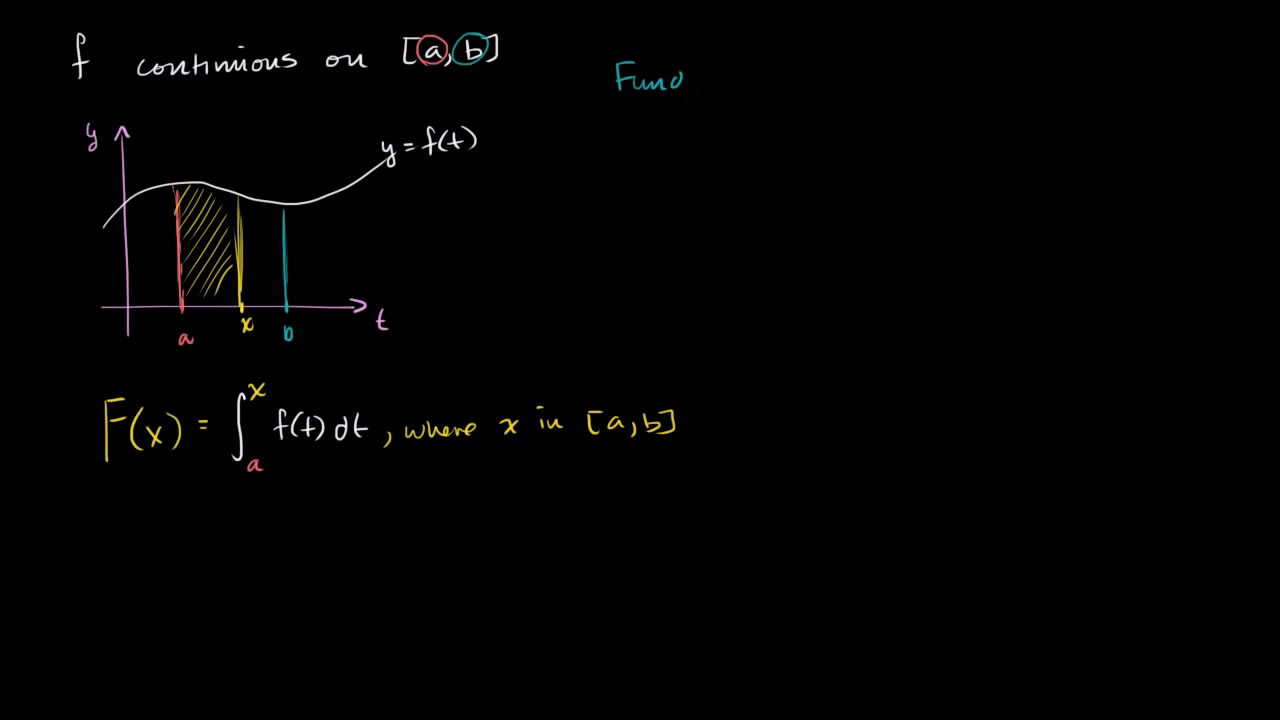 f continuous on [a, b]
Fund
y
y = f(t)
a
x
b
t
F(x) = ∫ₐˣ f(t) dt, where x in [a, b]